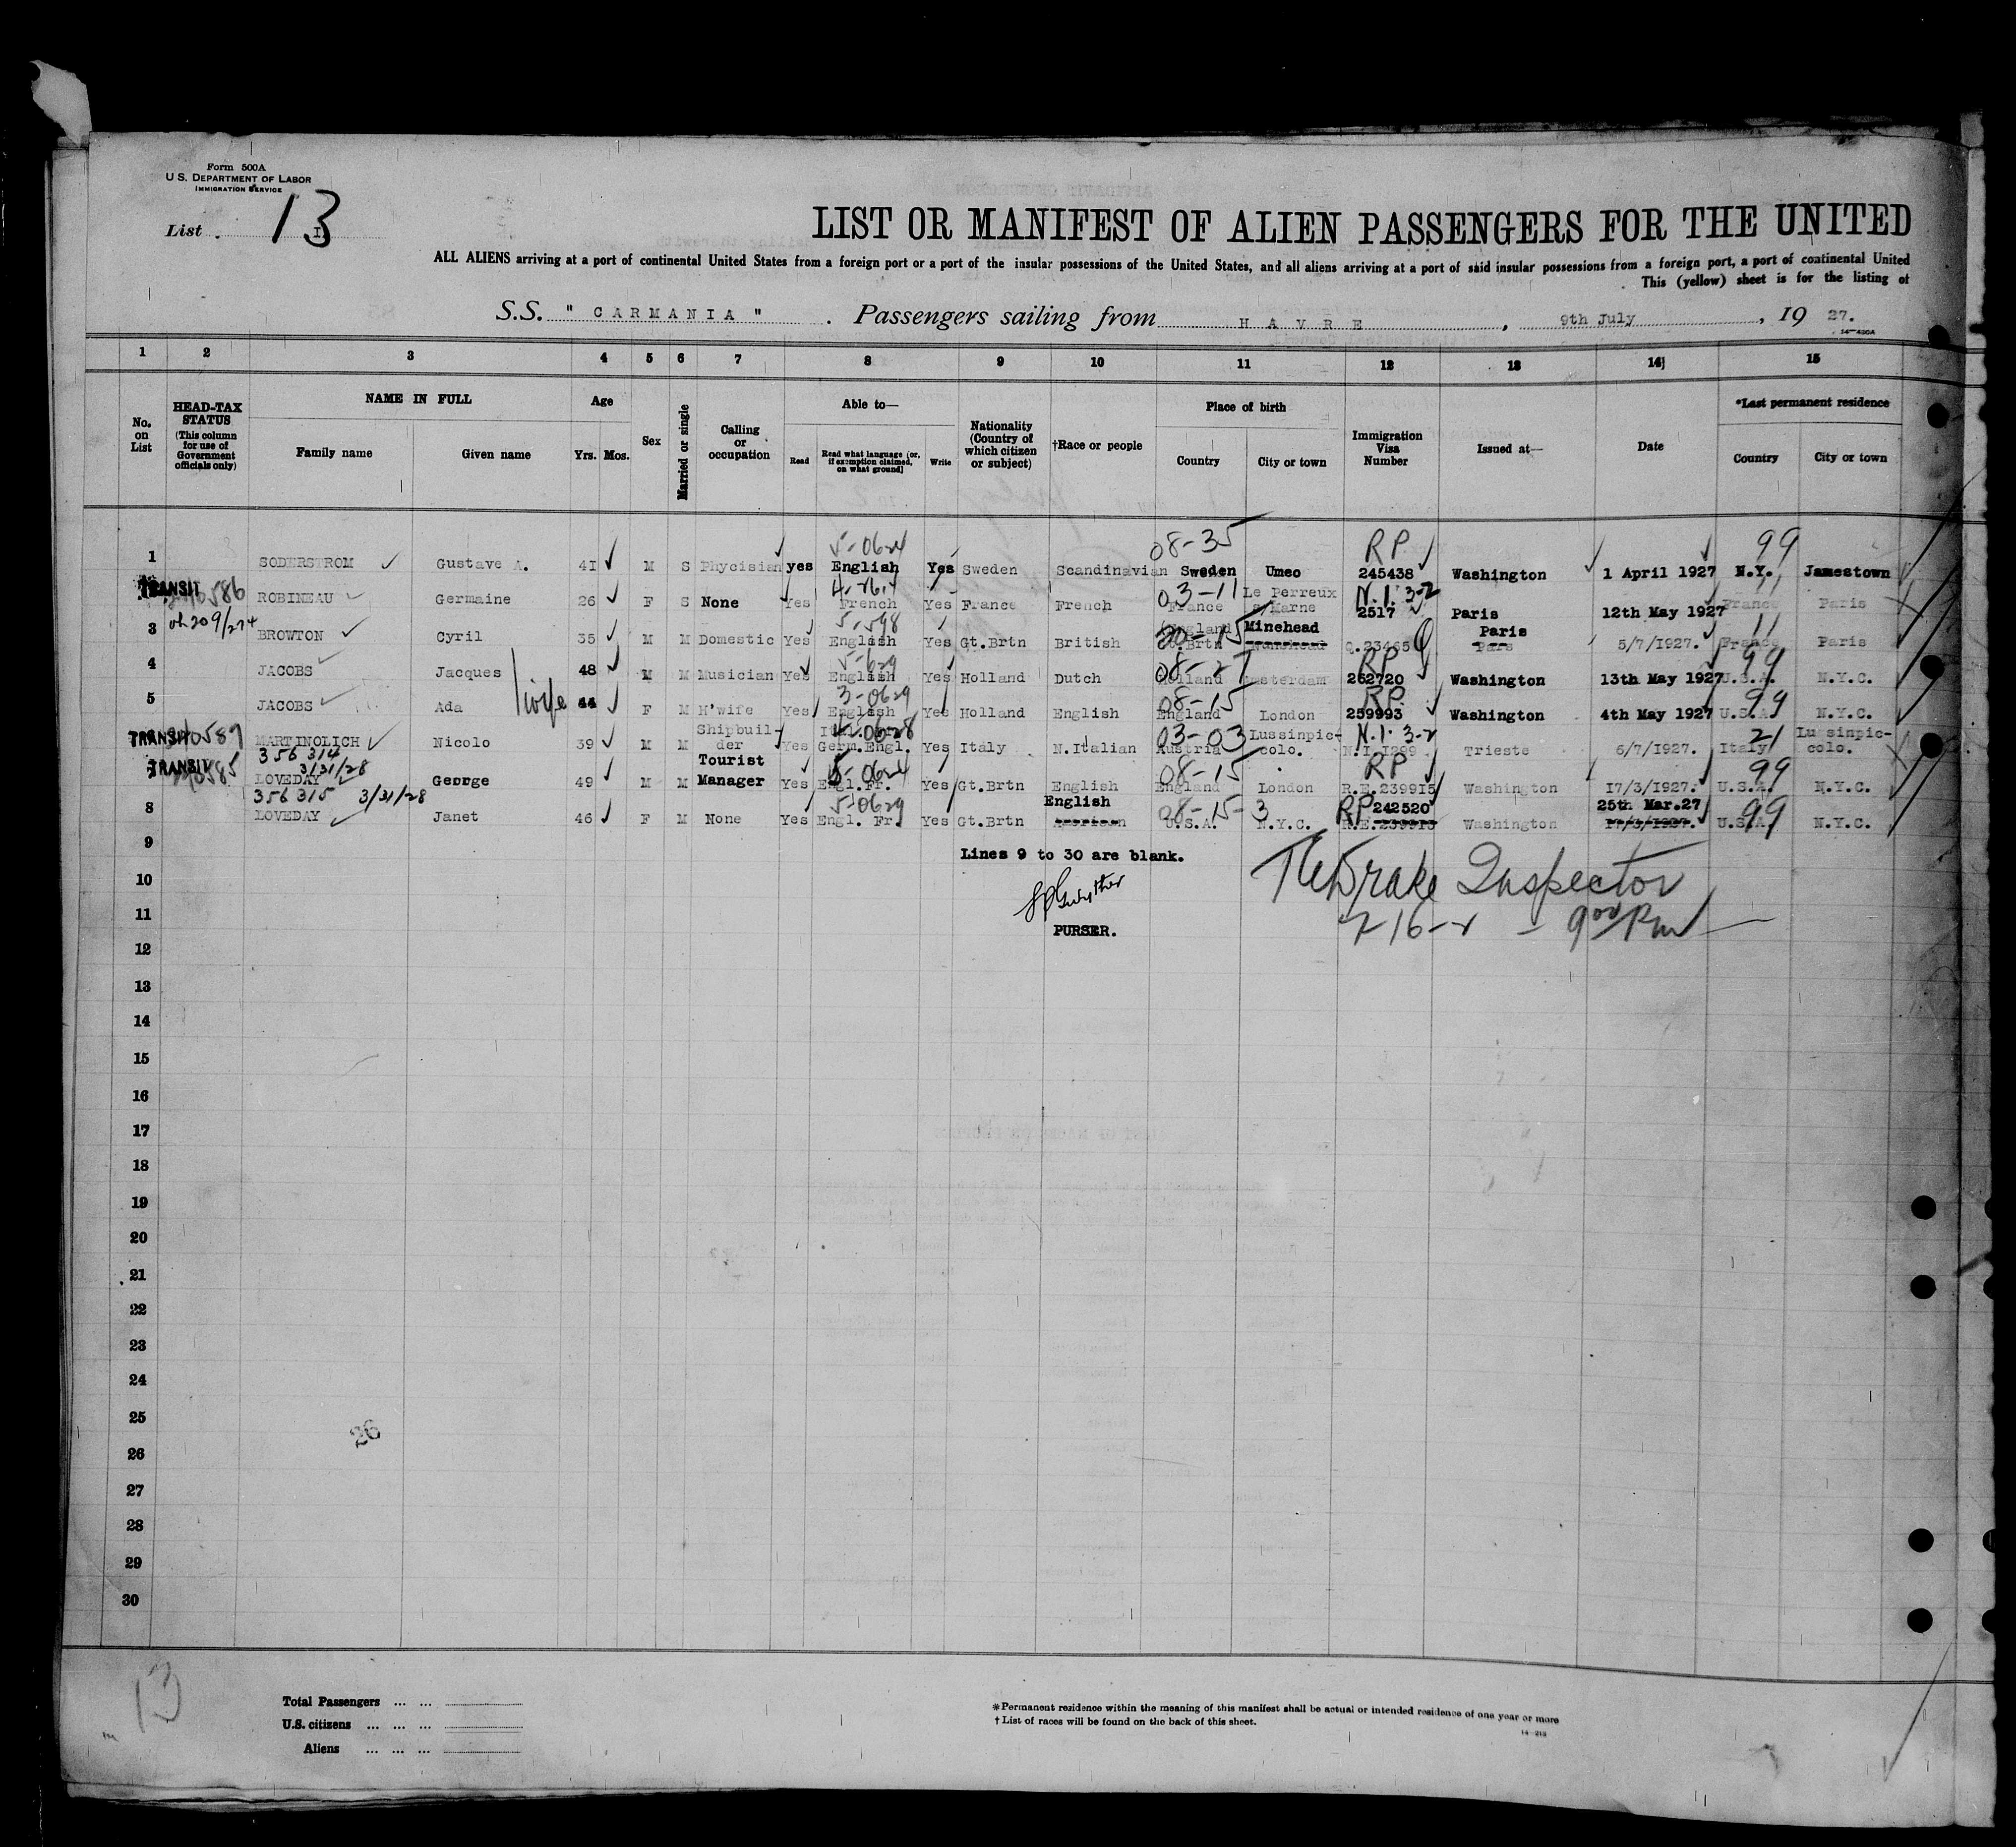 Form 500A
U.S. DEPARTMENT OF LABOR
IMMIGRATION SERVICE
List 13
LIST OR MANIFEST OF ALIEN PASSENGERS FOR THE UNITED
ALL ALIENS arriving at a port of continental United States from a foreign port or a port of the insular possessions of the United States, and all aliens arriving at a port of said insular possessions from a foreign port, a port of continental United
This (yellow) sheet is for the listing of
S.S. " CARMANIA " . Passengers sailing from HAVRE , 9th July , 19 27.
14-430A
1 2 3 4 5 6 7 8 9 10 11 12 13 14 15
No. on List
HEAD-TAX STATUS (This column for use of Government officials only)
NAME IN FULL
Family name
Given name
Age
Yrs. Mos.
Sex
Married or single
Calling or occupation
Able to—
Read
Read what language (or, if exemption claimed, on what ground)
Write
Nationality (Country of which citizen or subject)
†Race or people
Place of birth
Country
City or town
Immigration Visa Number
Issued at—
Date
*Last permanent residence
Country
City or town
5-0624 08-35 RP 99
1 SODERSTROM Gustave A. 41 M S Phycisian yes English Yes Sweden Scandinavian Sweden Umeo 245438 Washington 1 April 1927 N.Y. Jamestown
TRANSIT 03-11 N.I. 3-2
ROBINEAU Germaine 26 F S None Yes French Yes France French France Le Perreux s/Marne 2517 Paris 12th May 1927 France Paris
5-598
3 BROWTON Cyril 35 M M Domestic Yes English Yes Gt.Brtn British England Gt.Brtn Minehead Paris 5/7/1927. France Paris
5-629 08-27 RP 99
4 JACOBS Jacques 48 M M Musician Yes English Yes Holland Dutch Holland Amsterdam 262720 Washington 13th May 1927 U.S.A. N.Y.C.
wife 3-0629 08-15 RP 99
5 JACOBS Ada 44 F M H'wife Yes English Yes Holland English England London 259993 Washington 4th May 1927 U.S.A. N.Y.C.
TRANSIT 03-03 N.I. 3-2 21
MARTINOLICH Nicolo 39 M M Shipbuilder Yes Germ.Engl. Yes Italy N.Italian Austria Lussinpiccolo. N.I.1299 Trieste 6/7/1927. Italy Lussinpiccolo.
356 314 3/31/28
TRANSIT 5-0624 08-15 RP 99
LOVEDAY George 49 M M Tourist Manager Yes Engl.Fr. Yes Gt.Brtn English England London R.E.239915 Washington 17/3/1927. U.S.A. N.Y.C.
356 315 3/31/28
5-0629 08-15-3 RP 99
8 LOVEDAY Janet 46 F M None Yes Engl. Fr. Yes Gt.Brtn English American U.S.A. N.Y.C. 242520 R.E.239915 Washington 25th Mar.27 17/3/1927. U.S.A. N.Y.C.
9
Lines 9 to 30 are blank.
Drake Inspector
10
11
PURSER.
12
13
14
15
16
17
18
19
20
21
22
23
24
25
26
26
27
28
29
30
13
Total Passengers ... ...
U.S. citizens ... ... ...
Aliens ... ... ...
*Permanent residence within the meaning of this manifest shall be actual or intended residence of one year or more
†List of races will be found on the back of this sheet.
14-213